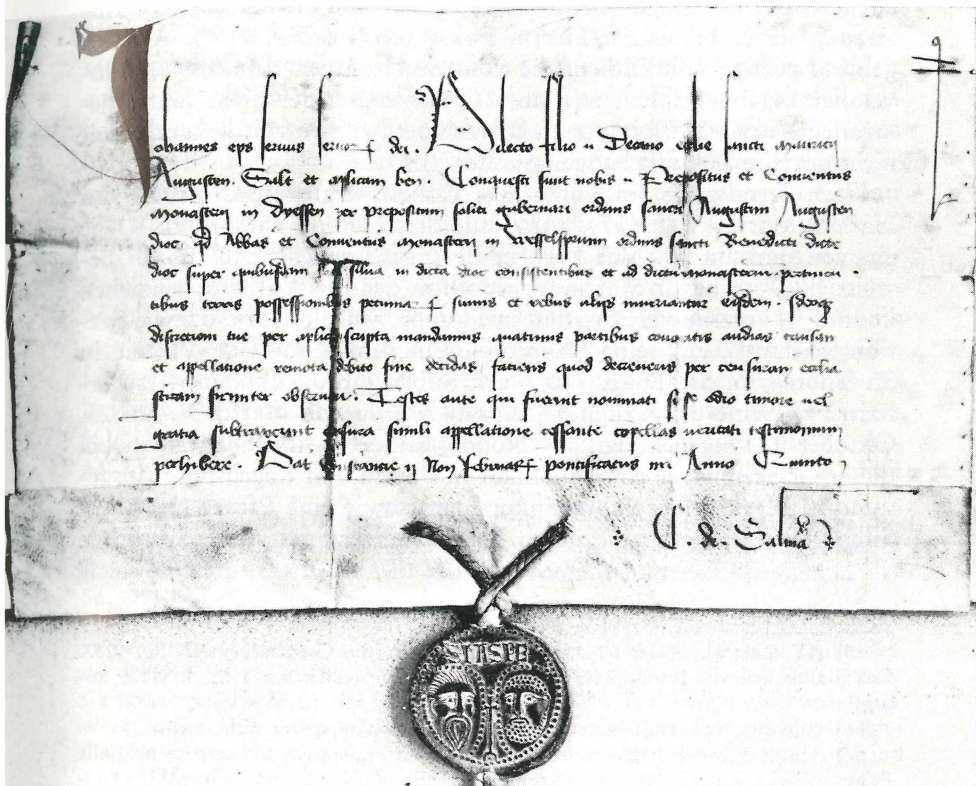 Johannes eps servus servor dei. Dilecto filio .. Decano ecclie sancti Mauricij
Augusten. Salt et aplicam ben. Conquesti sunt nobis .. Prepositus et Conventus
monasterij in Dyessen per prepositum soliti gubernari ordinis sancti Augustini Augusten
dioc qd Abbas et Conventus monasterij in Wesselspruñ ordinis sancti Benedicti dicte
dioc super quibusdam silvis in dicta dioc consistentibus et ad dictum monasterium pertinen
tibus terris possessionibus pecuniar summis et rebus alijs iniuriantur eisdem. Ideoq
discretioni tue per aplica scripta mandamus quatinus partibus convocatis audias causam
et appellatione remota debito fine decidas faciens quod decreveris per censuram ecclia
sticam firmiter observari. Testes aute qui fuerint nominati si se odio timore vel
gratia subtraxerint censura simili appellatione cessante copellas veritati testimonium
perhibere. Dat Constantie ij Non Februar pontificatus nri Anno Quinto
C. de Salma
SPASPE